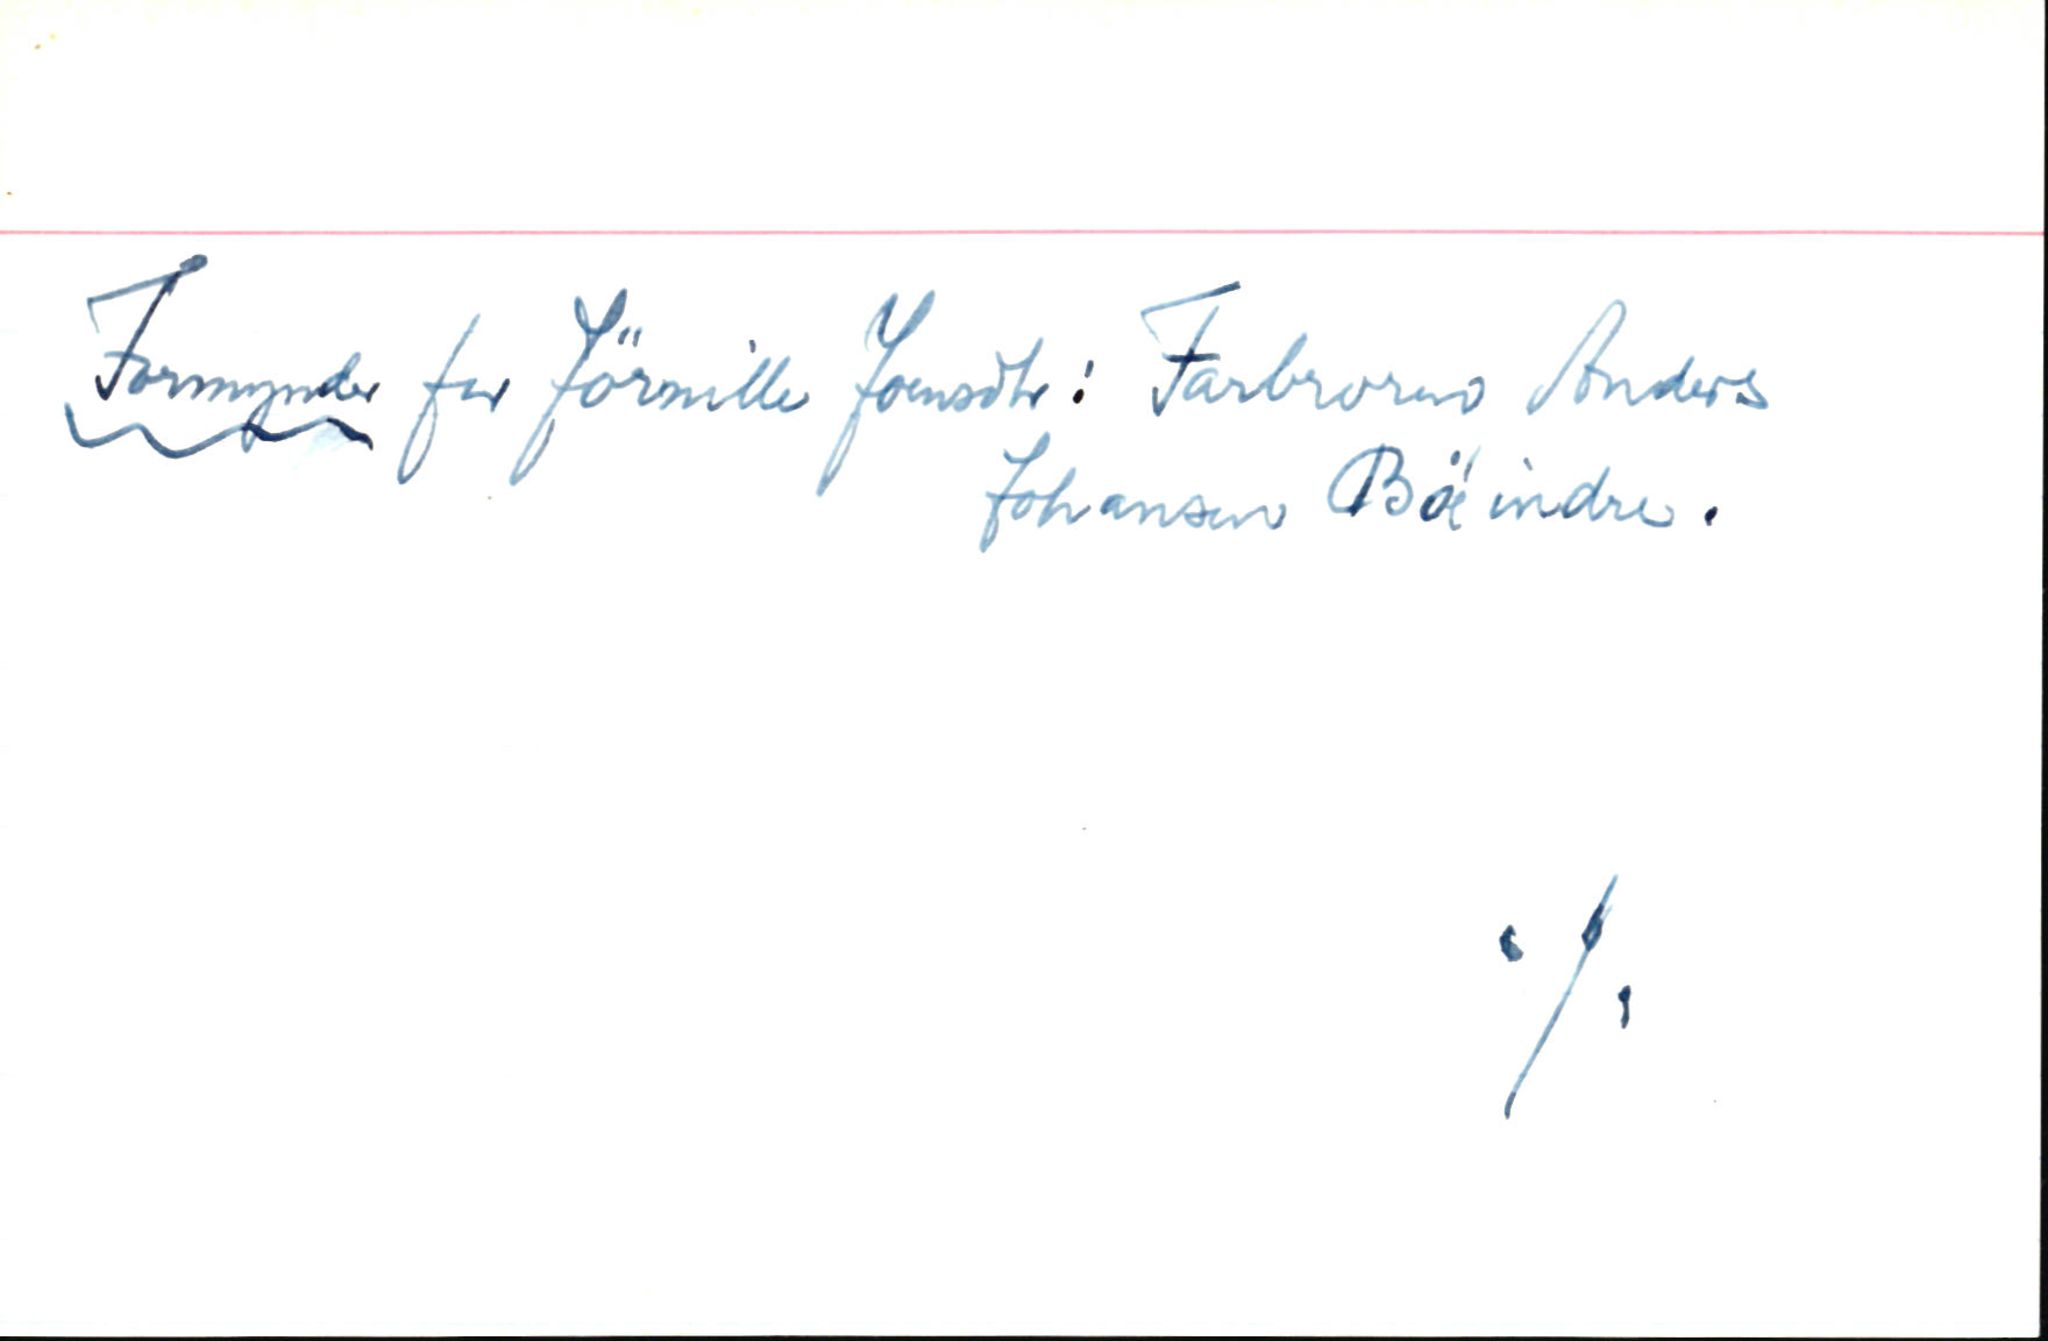 Formynder for Jörnille Joensdtr: Farbroren Anders
Johansen Bö indre.
./.